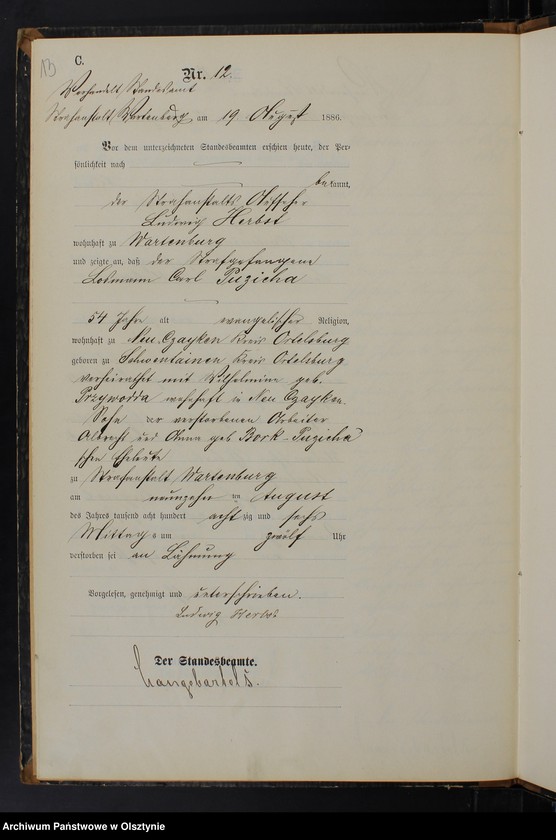 13
C.
Nr. 12.
Verhandelt Standesamt
Strafanstalt Wartenburg, am 19 August 1886.
Vor dem unterzeichneten Standesbeamten erschien heute, der Per-
sönlichkeit nach
bekannt,
der Strafanstalts Aufseher
Ludwig Herbst
wohnhaft zu Wartenburg
und zeigte an, daß der Strafgefangene
Losmann Carl Puzicha
54 Jahr alt evangelischer Religion,
wohnhaft zu Neu Czayken Kreis Ortelsburg
geboren zu Schwentainen Kreis Ortelsburg
verheirathet mit Wilhelmine geb.
Przywodda wohnhaft in Neu Czayken.
Sohn der verstorbenen Arbeiter
Albrecht und Anna geb Bork-Puzicha'
schen Eheleute
zu Strafanstalt Wartenburg
am neunzehn ten August
des Jahres tausend acht hundert acht zig und sechs
Mittags um zwölf Uhr
verstorben sei an Lähmung
Vorgelesen, genehmigt und unterschrieben.
Ludwig Herbst
Der Standesbeamte.
Langebartels.
Archiwum Państwowe w Olsztynie